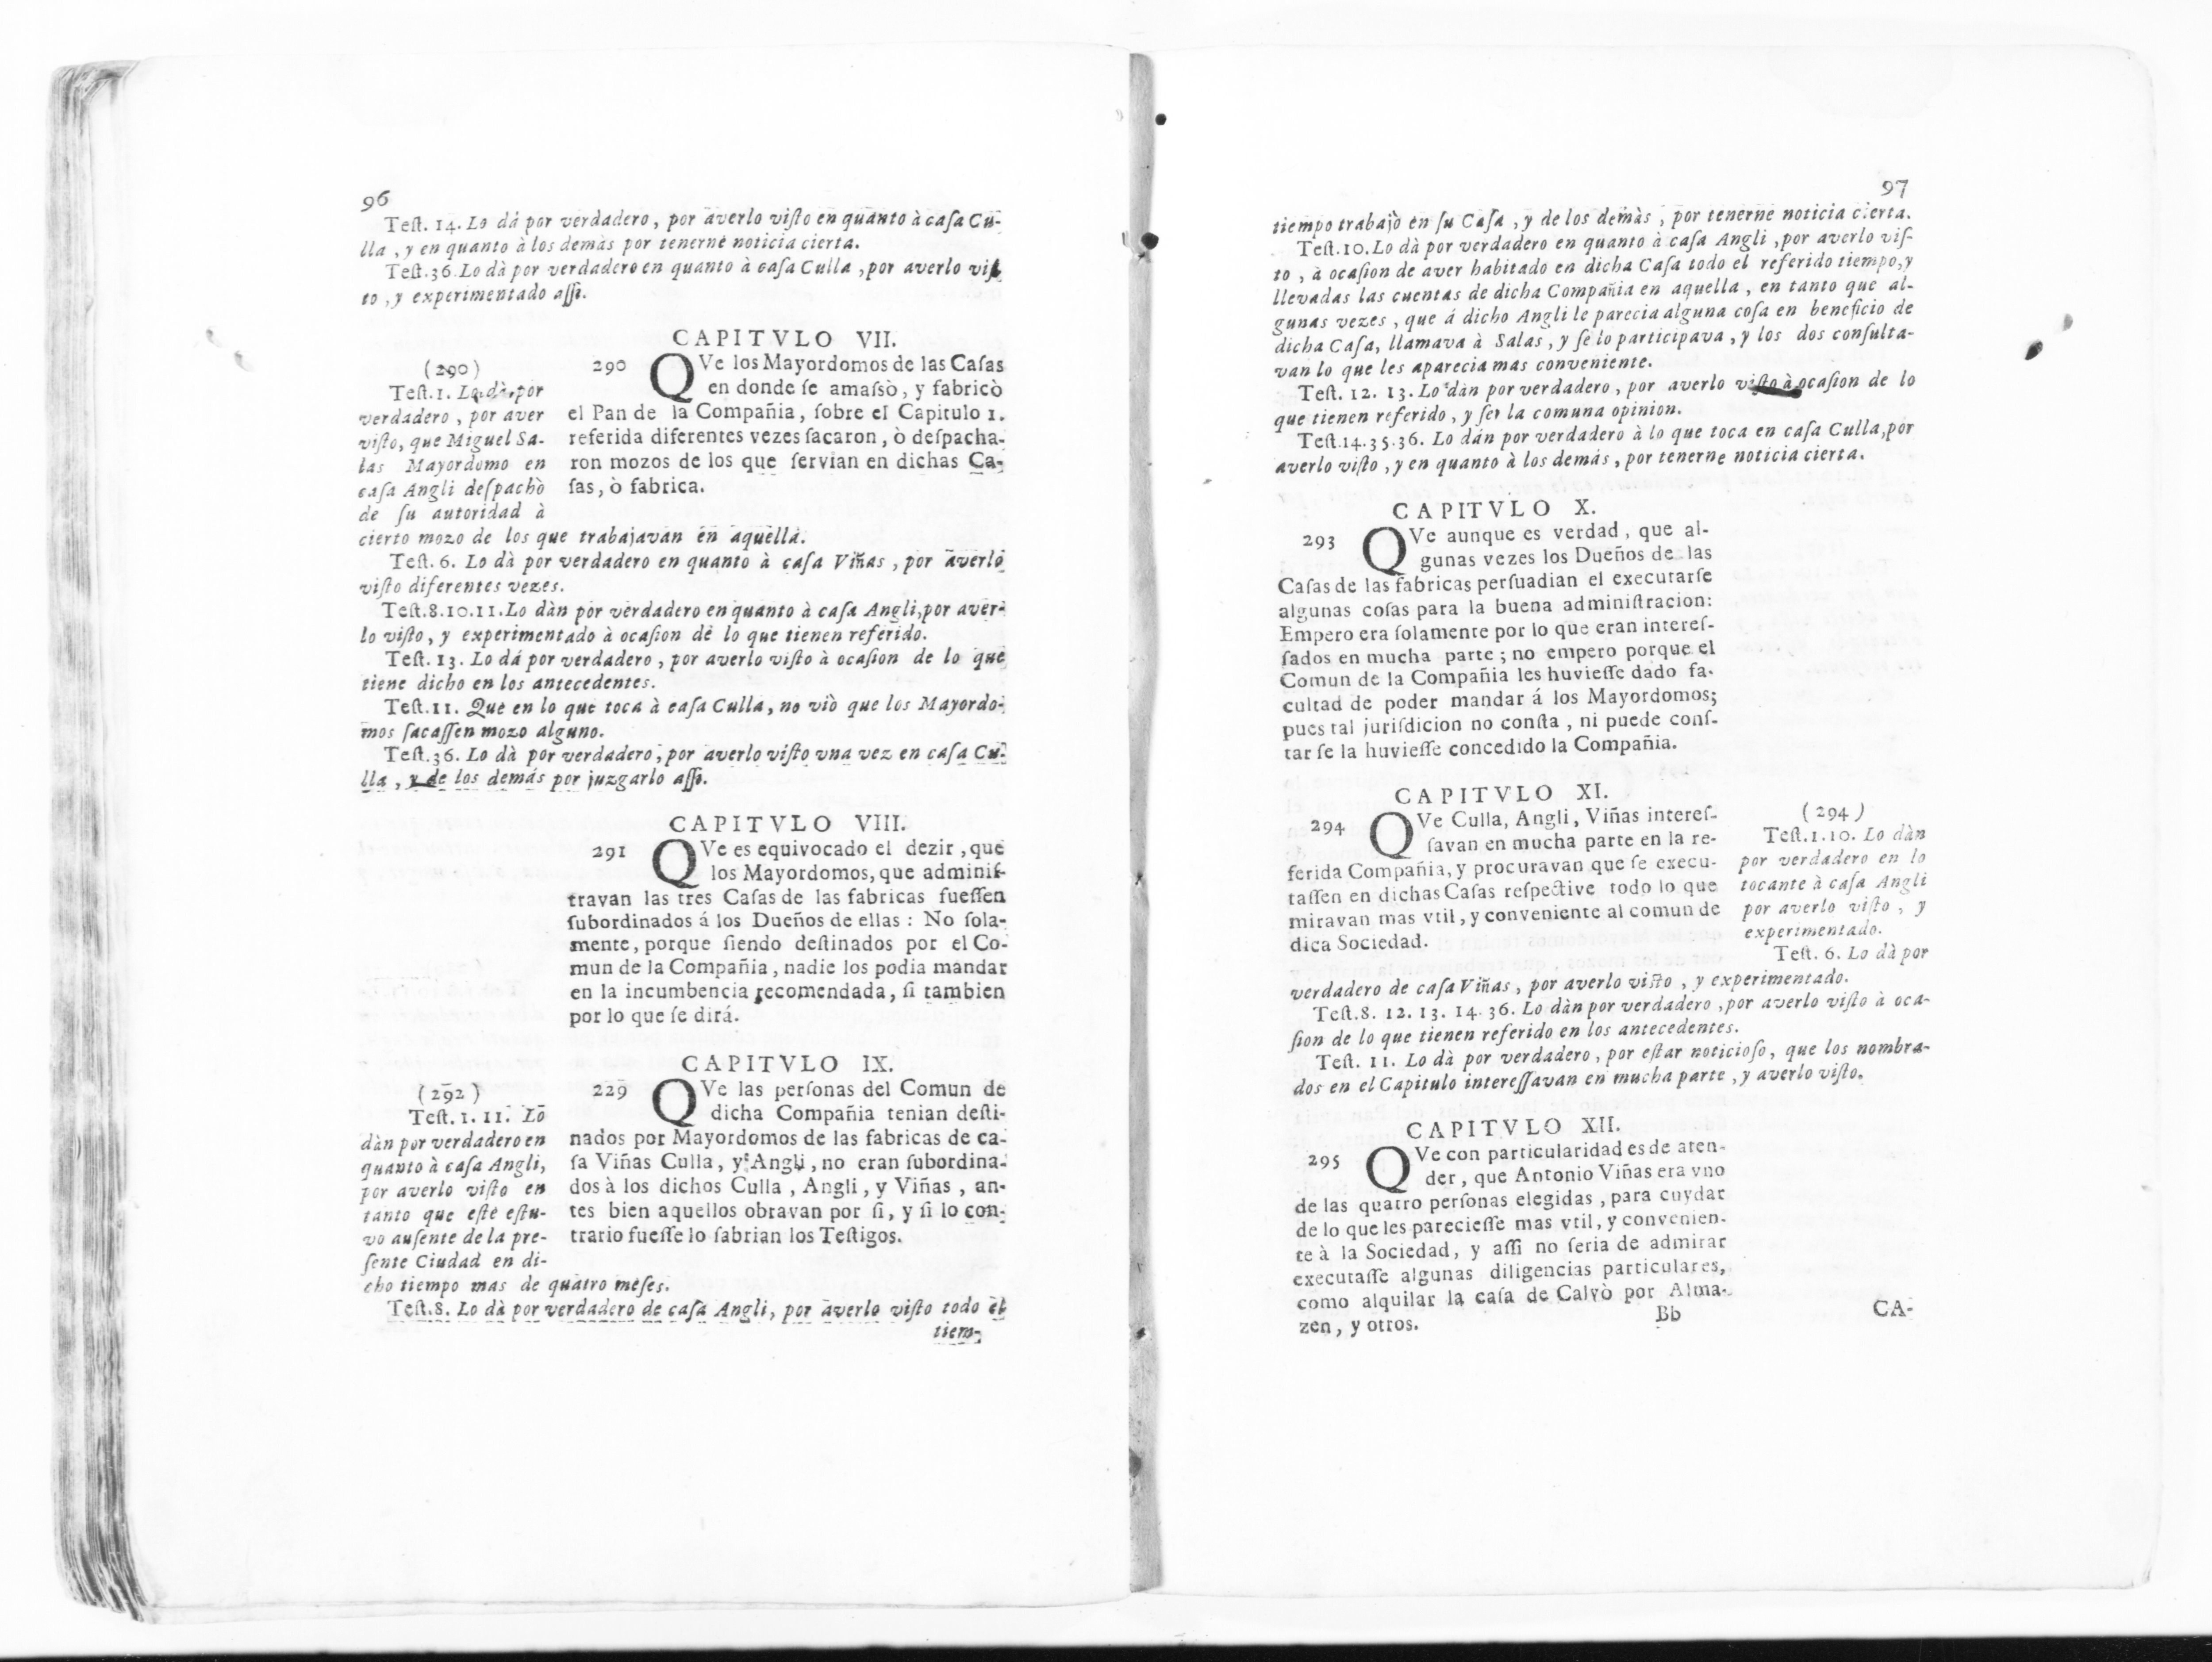 96
Teſt. 14. Lo dá por verdadero, por averlo viſto en quanto à caſa Cu-
lla, y en quanto à los demàs por tenerne noticia cierta.
Teſt. 36. Lo dà por verdadero en quanto à caſa Culla, por averlo viſ-
to, y experimentado aſſi.
CAPITVLO VII.
290 QVe los Mayordomos de las Caſas
en donde ſe amaſsò, y fabricò
el Pan de la Compañia, ſobre el Capitulo 1.
referida diferentes vezes ſacaron, ò deſpacha-
ron mozos de los que ſervian en dichas Ca-
ſas, ò fabrica.
(290)
Teſt. 1. Lo dà por
verdadero, por aver
viſto, que Miguel Sa-
las Mayordomo en
caſa Angli deſpachò
de ſu autoridad à
cierto mozo de los que trabajavan en aquella.
Teſt. 6. Lo dà por verdadero en quanto à caſa Viñas, por averlo
viſto diferentes vezes.
Teſt. 8. 10. 11. Lo dàn por verdadero en quanto à caſa Angli, por aver-
lo viſto, y experimentado à ocaſion de lo que tienen referido.
Teſt. 13. Lo dá por verdadero, por averlo viſto à ocaſion de lo que
tiene dicho en los antecedentes.
Teſt. 11. Que en lo que toca à caſa Culla, no viò que los Mayordo-
mos ſacaſſen mozo alguno.
Teſt. 36. Lo dà por verdadero, por averlo viſto vna vez en caſa Cu-
lla, y de los demás por juzgarlo aſſi.
CAPITVLO VIII.
291 QVe es equivocado el dezir, que
los Mayordomos, que adminiſ-
travan las tres Caſas de las fabricas fueſſen
ſubordinados á los Dueños de ellas: No ſola-
mente, porque ſiendo deſtinados por el Co-
mun de la Compañia, nadie los podia mandar
en la incumbencia recomendada, ſi tambien
por lo que ſe dirá.
CAPITVLO IX.
229 QVe las perſonas del Comun de
dicha Compañia tenian deſti-
nados por Mayordomos de las fabricas de ca-
ſa Viñas Culla, y Angli, no eran ſubordina-
dos à los dichos Culla, Angli, y Viñas, an-
tes bien aquellos obravan por ſi, y ſi lo con-
trario fueſſe lo ſabrian los Teſtigos.
(292)
Teſt. 1. 11. Lo
dàn por verdadero en
quanto à caſa Angli,
por averlo viſto en
tanto que eſtè eſtu-
vo auſente de la pre-
ſente Ciudad en di-
cho tiempo mas de quatro meſes.
Teſt. 8. Lo dà por verdadero de caſa Angli, por averlo viſto todo el
tiem-
97
tiempo trabajò en ſu Caſa, y de los demàs, por tenerne noticia cierta.
Teſt. 10. Lo dà por verdadero en quanto à caſa Angli, por averlo viſ-
to, à ocaſion de aver habitado en dicha Caſa todo el referido tiempo, y
llevadas las cuentas de dicha Compañia en aquella, en tanto que al-
gunas vezes, que á dicho Angli le parecia alguna coſa en beneficio de
dicha Caſa, llamava à Salas, y ſe lo participava, y los dos conſulta-
van lo que les aparecia mas conveniente.
Teſt. 12. 13. Lo dàn por verdadero, por averlo viſto à ocaſion de lo
que tienen referido, y ſer la comuna opinion.
Teſt. 14. 35. 36. Lo dán por verdadero à lo que toca en caſa Culla, por
averlo viſto, y en quanto à los demás, por tenerne noticia cierta.
CAPITVLO X.
293 QVe aunque es verdad, que al-
gunas vezes los Dueños de las
Caſas de las fabricas perſuadian el executarſe
algunas coſas para la buena adminiſtracion:
Empero era ſolamente por lo que eran intereſ-
ſados en mucha parte; no empero porque el
Comun de la Compañia les huvieſſe dado fa-
cultad de poder mandar á los Mayordomos;
pues tal juriſdicion no conſta, ni puede conſ-
tar ſe la huvieſſe concedido la Compañia.
CAPITVLO XI.
294 QVe Culla, Angli, Viñas intereſ-
ſavan en mucha parte en la re-
ferida Compañia, y procuravan que ſe execu-
taſſen en dichas Caſas reſpective todo lo que
miravan mas vtil, y conveniente al comun de
dica Sociedad.
(294)
Teſt. 1. 10. Lo dàn
por verdadero en lo
tocante à caſa Angli
por averlo viſto, y
experimentado.
Teſt. 6. Lo dà por
verdadero de caſa Viñas, por averlo viſto, y experimentado.
Teſt. 8. 12. 13. 14. 36. Lo dàn por verdadero, por averlo viſto à oca-
ſion de lo que tienen referido en los antecedentes.
Teſt. 11. Lo dà por verdadero, por eſtar noticioſo, que los nombra-
dos en el Capitulo intereſſavan en mucha parte, y averlo viſto.
CAPITVLO XII.
295 QVe con particularidad es de aten-
der, que Antonio Viñas era vno
de las quatro perſonas elegidas, para cuydar
de lo que les parecieſſe mas vtil, y convenien-
te à la Sociedad, y aſſi no ſeria de admirar
executaſſe algunas diligencias particulares,
como alquilar la caſa de Calvò por Alma-
zen, y otros.
Bb
CA-